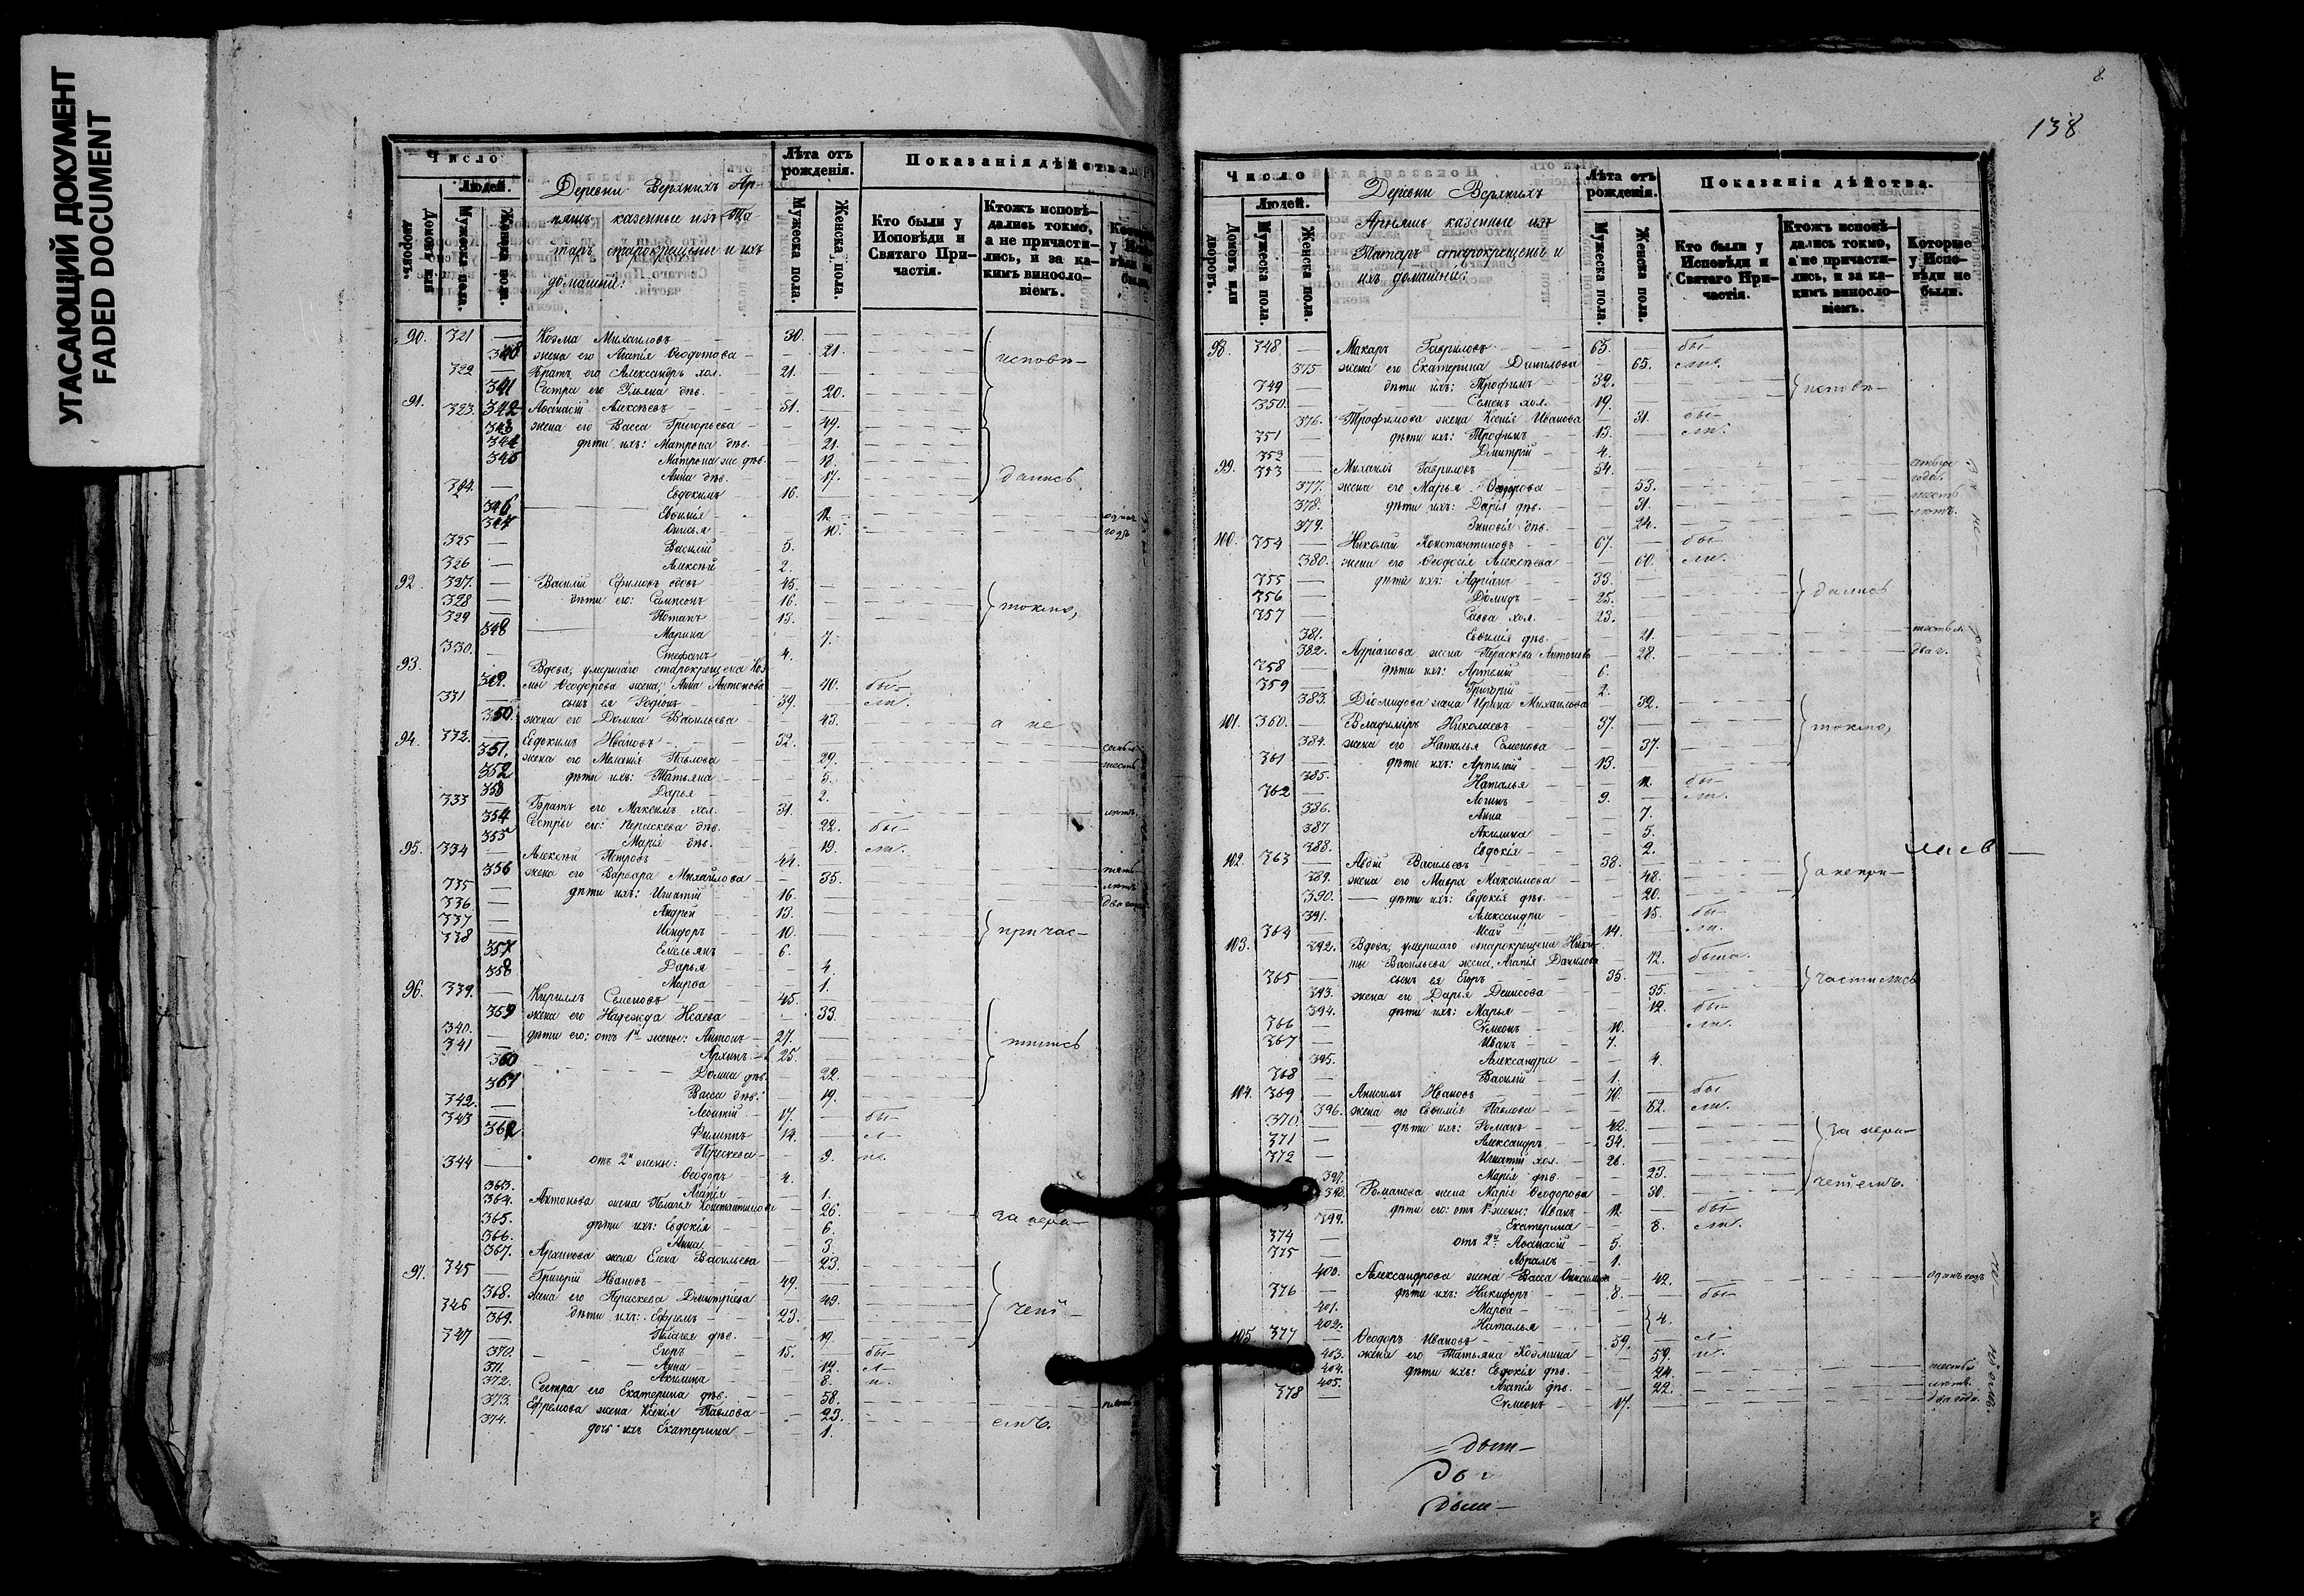 УГАСАЮЩИЙ ДОКУМЕНТ
FADED DOCUMENT
Число
Людей.
Домовъ или дворовъ.
Мужеска пола.
Женска пола.
Деревни Верхнихъ Ар-
няшъ казенные изъ Та-
таръ старокрещены и ихъ
домашніи:
Лѣта отъ рожденія.
Мужеска пола.
Женска пола.
Показанія дѣйства
Кто были у Исповѣди и Святаго При-частія.
Ктожъ исповѣ-дались токмо, а не причасти-лись, и за ка-кимъ винносло-віемъ.
90. 321 — Козма Михаиловъ — 30.
340 жена его Агапія Ѳеодотова — 21. исповѣ-
322 — Братъ его Александръ хол. — 21.
341 Сестра его Ульяна дѣв. — 20.
91. 323. 342 Аѳанасій Алексѣевъ — 51.
343 жена его Васса Григорьева — 49.
344 дѣти ихъ: Матрона дѣв. — 21.
345 Матрона же дѣв. — 18.
Анна дѣв. — 17. дались
324. — Евдокимъ 16.
346 Евѳимія — 12.
347 Анисья — 10.
325 — Василій — 5.
326 — Алексѣй — 2.
92. 327. — Василій Ефимовъ вдовъ — 45.
328 — дѣти его: Сампсонъ — 16. токмо,
329 — Потапъ — 13.
348 Марина 7.
330. — Стефанъ 4.
93. Вдова, умершаго старокрещена Коз-
349. мы Ѳеодорова жена, Анна Антонова 40. бы-
331 — сынъ ея Родіонъ — 39. ли.
350. жена его Домна Васильева — 43. а не
94. 332. — Евдокимъ Ивановъ — 32.
351. жена его Меланія Павлова — 29.
352 дѣти ихъ: Татьяна — 5.
353 Дарья — 2.
333 — Братъ его Максимъ хол. — 31.
354 Сестры его: Параскева дѣв. — 22. бы-
355 Марія дѣв. — 19. ли.
95. 334 — Алексѣй Петровъ — 44.
356 жена его Варвара Михайлова — 35.
335 — дѣти ихъ: Игнатій — 16.
336 — Андрей — 13.
337 — Исидоръ — 10. причас-
338 — Емельянъ — 6.
357 Дарья — 4.
358 Марѳа — 1.
96. 339. — Кириллъ Семеновъ — 45.
359 жена его Надежда Исаева — 33.
340. — дѣти его: отъ 1й жены: Антонъ — 27. тились
341 — Архипъ — 25.
360 Домна дѣв. 22.
361 Васса дѣв. 19.
342. — Леонтій — 17. бы-
343 — Филиппъ — 14. л-
362 Параскева — 9. и.
344 — отъ 2й жены: Ѳеодоръ — 4.
363. Агапія — 1.
364. Антонова жена Пелагія Константинова 26.
365. дѣти ихъ: Евдокія — 6. за нера-
366. Анна — 3.
367. Архипова жена Елена Васильева — 23.
97. 345 — Григорій Ивановъ — 49.
368. жена его Параскева Дмитріева 49.
346 — дѣти ихъ: Ефремъ — 23. чені-
369. Пелагея дѣв. 19.
347 — Егоръ 15. бы-
370. Анна — 12. л-
371. Акилина — 8. и.
372. Сестра его Екатерина дѣв. — 58.
373. Ефремова жена Ксенія Павлова — 23.
374. дочь ихъ Екатерина — 1. емъ.
8.
138
Число
Людей.
Домовъ или дворовъ.
Мужеска пола.
Женска пола.
Деревни Верхнихъ
Арняшъ казенные изъ
Татаръ старокрещены и
ихъ домашніи:
Лѣта отъ рожденія.
Мужеска пола.
Женска пола.
Показанія дѣйства.
Кто были у Исповѣди и Святаго При-частія.
Ктожъ исповѣ-дались токмо, а не причасти-лись, и за ка-кимъ винносло-віемъ.
Которые у Испо-вѣди не были.
98. 348 — Макаръ Гавриловъ — 65. бы-
375 жена его Екатерина Данилова 65. ли.
349 — дѣти ихъ: Трофимъ — 32. исповѣ-
350. — Семенъ хол. 19.
376. Трофимова жена Ксенія Иванова 31. бы-
351 — дѣти ихъ: Трофимъ — 13. ли.
352 — Дмитрій — 4.
99. 353 — Михаилъ Гавриловъ — 54.
377. жена его Марья Ѳедорова — 53.
378. дѣти ихъ: Дарія дѣв. — 31. шесть
379. Зиновія дѣв. — 24. лѣтъ.
100. 354 — Николай Константиновъ — 67. бы-
380. жена его Ѳеодосія Алексѣева — 60. ли.
355 — дѣти ихъ: Адріанъ — 33.
356 — Діомидъ — 25. дались
357 — Савва хол. — 23.
381. Евѳимія дѣв. — 21.
382. Адріанова жена Параскева Антонова 28. два г.
358 — дѣти ихъ: Артемій — 6.
359 — Григорій — 2.
383. Діомидова жена Ирина Михаилова 32.
101. 360. — Владиміръ Николаевъ — 37. токмо,
384. жена его Наталья Семенова — 37.
361 — дѣти ихъ: Артемій — 13.
385. Наталья — 12. бы-
362 — Логинъ — 9. ли.
386. Анна — 7.
387 Акилина — 5.
388. Евдокія — 2.
102. 363 — Авдій Васильевъ — 38.
389. жена его Мавра Максимова — 48. а не при-
390. дѣти ихъ: Евдокія дѣв. — 20.
391. Александра — 15. бы-
364 — Исай — 14. ли.
103. 392. Вдова, умершаго старокрещена Ники-
ты Васильева жена, Агапія Данилова 72. была.
365 — сынъ ея Егоръ — 35. частились
393. жена его Дарья Денисова — 35.
394. дѣти ихъ: Марья — 12. бы-
366 — Сѵмеонъ — 10. ли.
367 — Иванъ — 7.
395. Александра — 4.
368 — Василій — 1.
104. 369 — Анисимъ Ивановъ — 70. бы-
396. жена его Евѳимія Павлова — 52. ли.
370 — дѣти ихъ: Романъ — 42. за нера-
371 — Александръ — 34.
372 — Игнатій хол. — 26.
397. Марія дѣв. — 23. ченіемъ.
398. Романова жена Марія Ѳеодорова 30.
дѣти его: отъ 1й жены: Иванъ — 12. бы-
399. Екатерина — 8. ли.
374 — отъ 2й: Аѳанасій — 5.
375 — Абрамъ — 1.
400. Александрова жена Васса Онисимова 42. одинъ годъ
376 — дѣти ихъ: Никифоръ — 8. бы-
401. Марѳа —
402. Наталья — 4.
105. 377 — Ѳеодоръ Ивановъ — 59. л-
403. жена его Татьяна Козмина — 59. и.
404. дѣти ихъ: Евдокія дѣв. 24.
405. Агапія дѣв. — 22. лѣтъ.
378 — Сѵмеонъ — 17. два года.